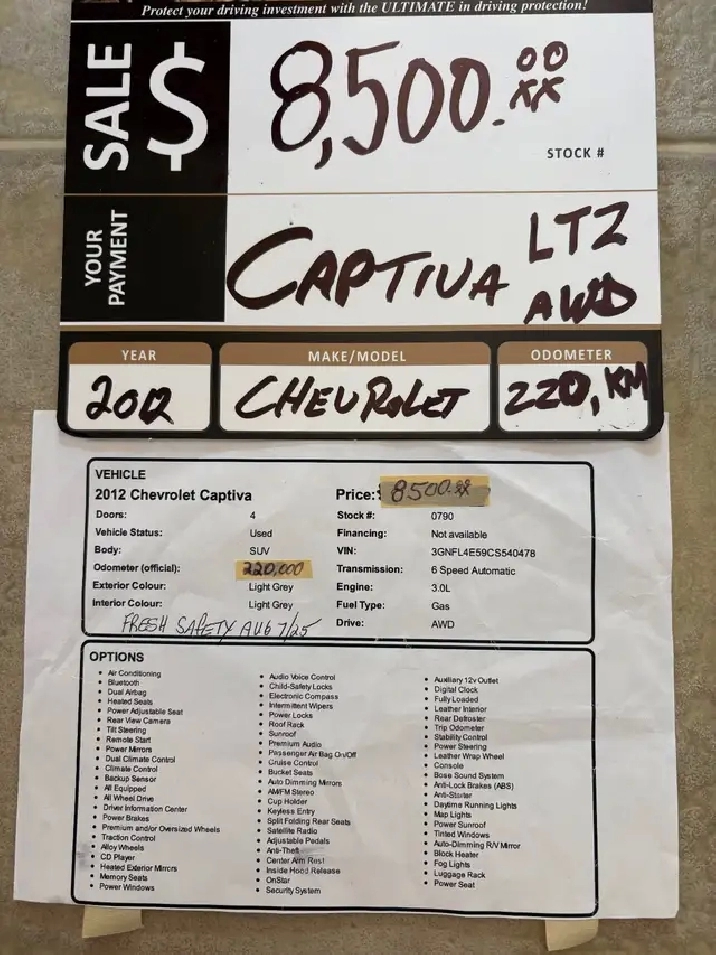 Protect your driving investment with the ULTIMATE in driving protection!
SALE $ 8,500.00 xx
STOCK #
YOUR PAYMENT
CAPTIVA LTZ AWD
YEAR MAKE/MODEL ODOMETER
2012 CHEVROLET 220, KM
VEHICLE
2012 Chevrolet Captiva Price: $ 8500.xx
Doors: 4 Stock #: 0790
Vehicle Status: Used Financing: Not available
Body: SUV VIN: 3GNFL4E59CS540478
Odometer (official): 220,000 Transmission: 6 Speed Automatic
Exterior Colour: Light Grey Engine: 3.0L
Interior Colour: Light Grey Fuel Type: Gas
FRESH SAFETY AUG 7/25 Drive: AWD
OPTIONS
• Air Conditioning
• Bluetooth
• Dual Airbag
• Heated Seats
• Power Adjustable Seat
• Rear View Camera
• Tilt Steering
• Remote Start
• Power Mirrors
• Dual Climate Control
• Climate Control
• Backup Sensor
• All Equipped
• All Wheel Drive
• Driver Information Center
• Power Brakes
• Premium and/or Oversized Wheels
• Traction Control
• Alloy Wheels
• CD Player
• Heated Exterior Mirrors
• Memory Seats
• Power Windows
• Audio Voice Control
• Child-Safety Locks
• Electronic Compass
• Intermittent Wipers
• Power Locks
• Roof Rack
• Sunroof
• Premium Audio
• Passenger Air Bag On/Off
• Cruise Control
• Bucket Seats
• Auto Dimming Mirrors
• AM/FM Stereo
• Cup Holder
• Keyless Entry
• Split Folding Rear Seats
• Satellite Radio
• Adjustable Pedals
• Anti-Theft
• Center Arm Rest
• Inside Hood Release
• OnStar
• Security System
• Auxiliary 12v Outlet
• Digital Clock
• Fully Loaded
• Leather Interior
• Rear Defroster
• Trip Odometer
• Stability Control
• Power Steering
• Leather Wrap Wheel
• Console
• Bose Sound System
• Anti-Lock Brakes (ABS)
• Anti-Starter
• Daytime Running Lights
• Map Lights
• Power Sunroof
• Tinted Windows
• Auto-Dimming R/V Mirror
• Block Heater
• Fog Lights
• Luggage Rack
• Power Seat